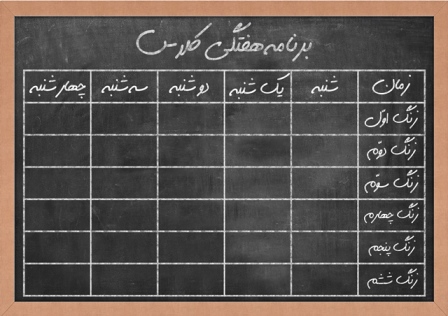 برنامه هفتگی کلاس
زمان شنبه یک شنبه دو شنبه سه شنبه چهار شنبه
زنگ اول
زنگ دوم
زنگ سوم
زنگ چهارم
زنگ پنجم
زنگ ششم